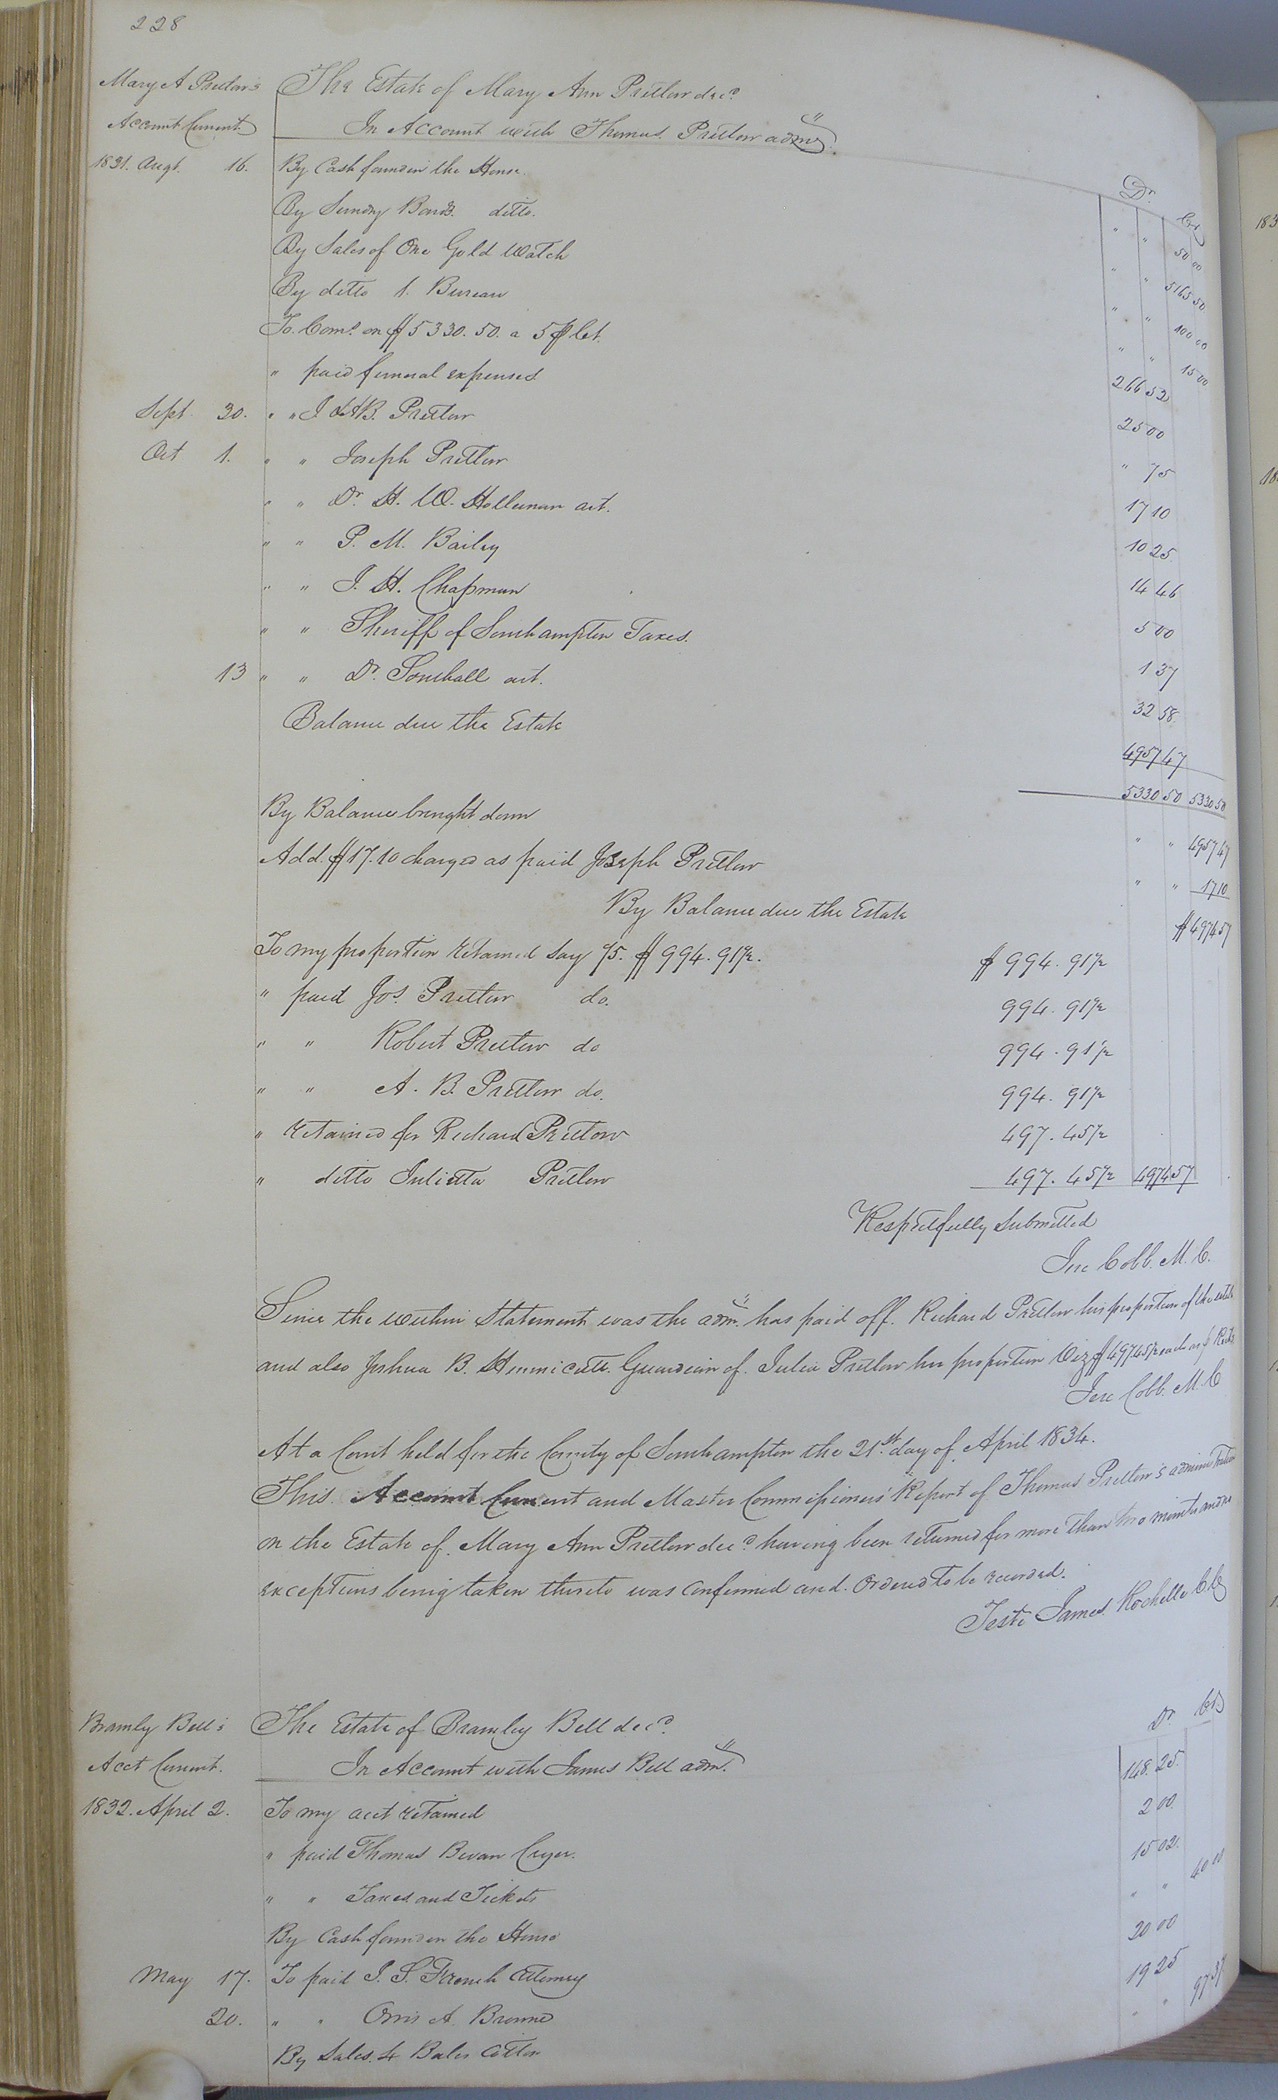 228
Mary A Pretlow's The Estate of Mary Ann Pretlow decd.
Account Current. In Account with Thomas Pretlow admr.
Dr. Cr.
1831. Augt. 16. By Cash found in the House " " 50 00
By Sundry Bonds. ditto. " " 5165 50
By Sales of One Gold Watch " " 100 00
By ditto 1. Bureau " " 15 00
To Coms. on $5330.50. a 5 pr Ct. 266 52
" paid funeral expenses 25 00
Sept. 30. " " J. & A B. Pretlow " 75
Oct 1. " " Joseph Pretlow 17 10
" " Dr. H. W. Holleman act. 10 25
" " P. M. Bailey 14 46
" " J. H. Chapman 5 00
" " Sheriff of Southampton Taxes. 1 37
13 " " Dr. Southall act. 32 58
Balance due the Estate 4957 47
5330 50 5330 50
By Balance brought down " " 4957 47
Add. $17.10 charged as paid Joseph Pretlow " " 17 10
By Balance due the Estate $4974 57
To my proportion retained say 1/5. $994.91½. $994.91½
" paid Jos. Pretlow do. 994.91½
" " Robert Pretlow do 994.91½
" " A. B. Pretlow do. 994.91½
" retained for Richard Pretlow 497.45½
" ditto Julietta Pretlow 497.45½ 4974 57
Respectfully Submitted
Jere Cobb. M. C.
Since the within Statement was the admr. has paid off. Richard Pretlow his proportion of the estate
and also Joshua B. Hunnicutt. Guardian of. Julia Pretlow her proportion Viz $497.45½ each as pr Rects
Jere Cobb. M. C
At a Court held for the County of Southampton the 21st. day of. April 1834.
This Account Current and Master Commissioners Report of Thomas Pretlow's administration
on the Estate of. Mary Ann Pretlow decd. having been returned for more than two months and no
exceptions being taken thereto was Confirmed and. Ordered to be recorded.
Teste James Rochelle C.C.
Dr. Cr.
Bramly Bell's The Estate of Bramley Bell decd.
Acct Current. In Account with James Bell admr.
1832. April 2. To my acct retained 148. 25.
" paid Thomas Bevan Cryer. 2 00
" " Taxes and Tickets 15 02.
By Cash found in the House " " 40 00
May 17. To paid J. S. French Attorney 20 00
20. " " Orris A. Browne 19 25
By Sales. 4 Bales Cotton " " 97.37